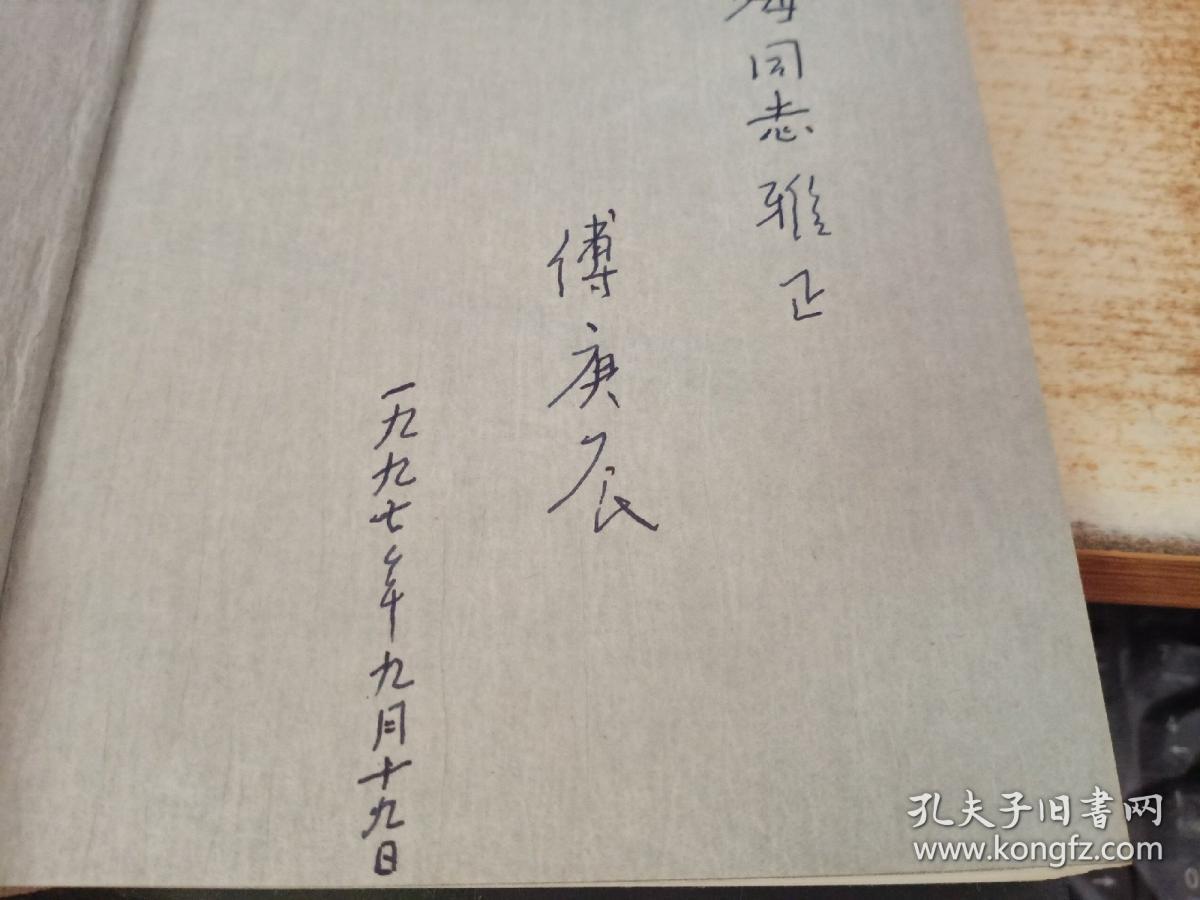 同志雅正
傅庚辰
一九九七年九月十九日
孔夫子旧书网
www.kongfz.com